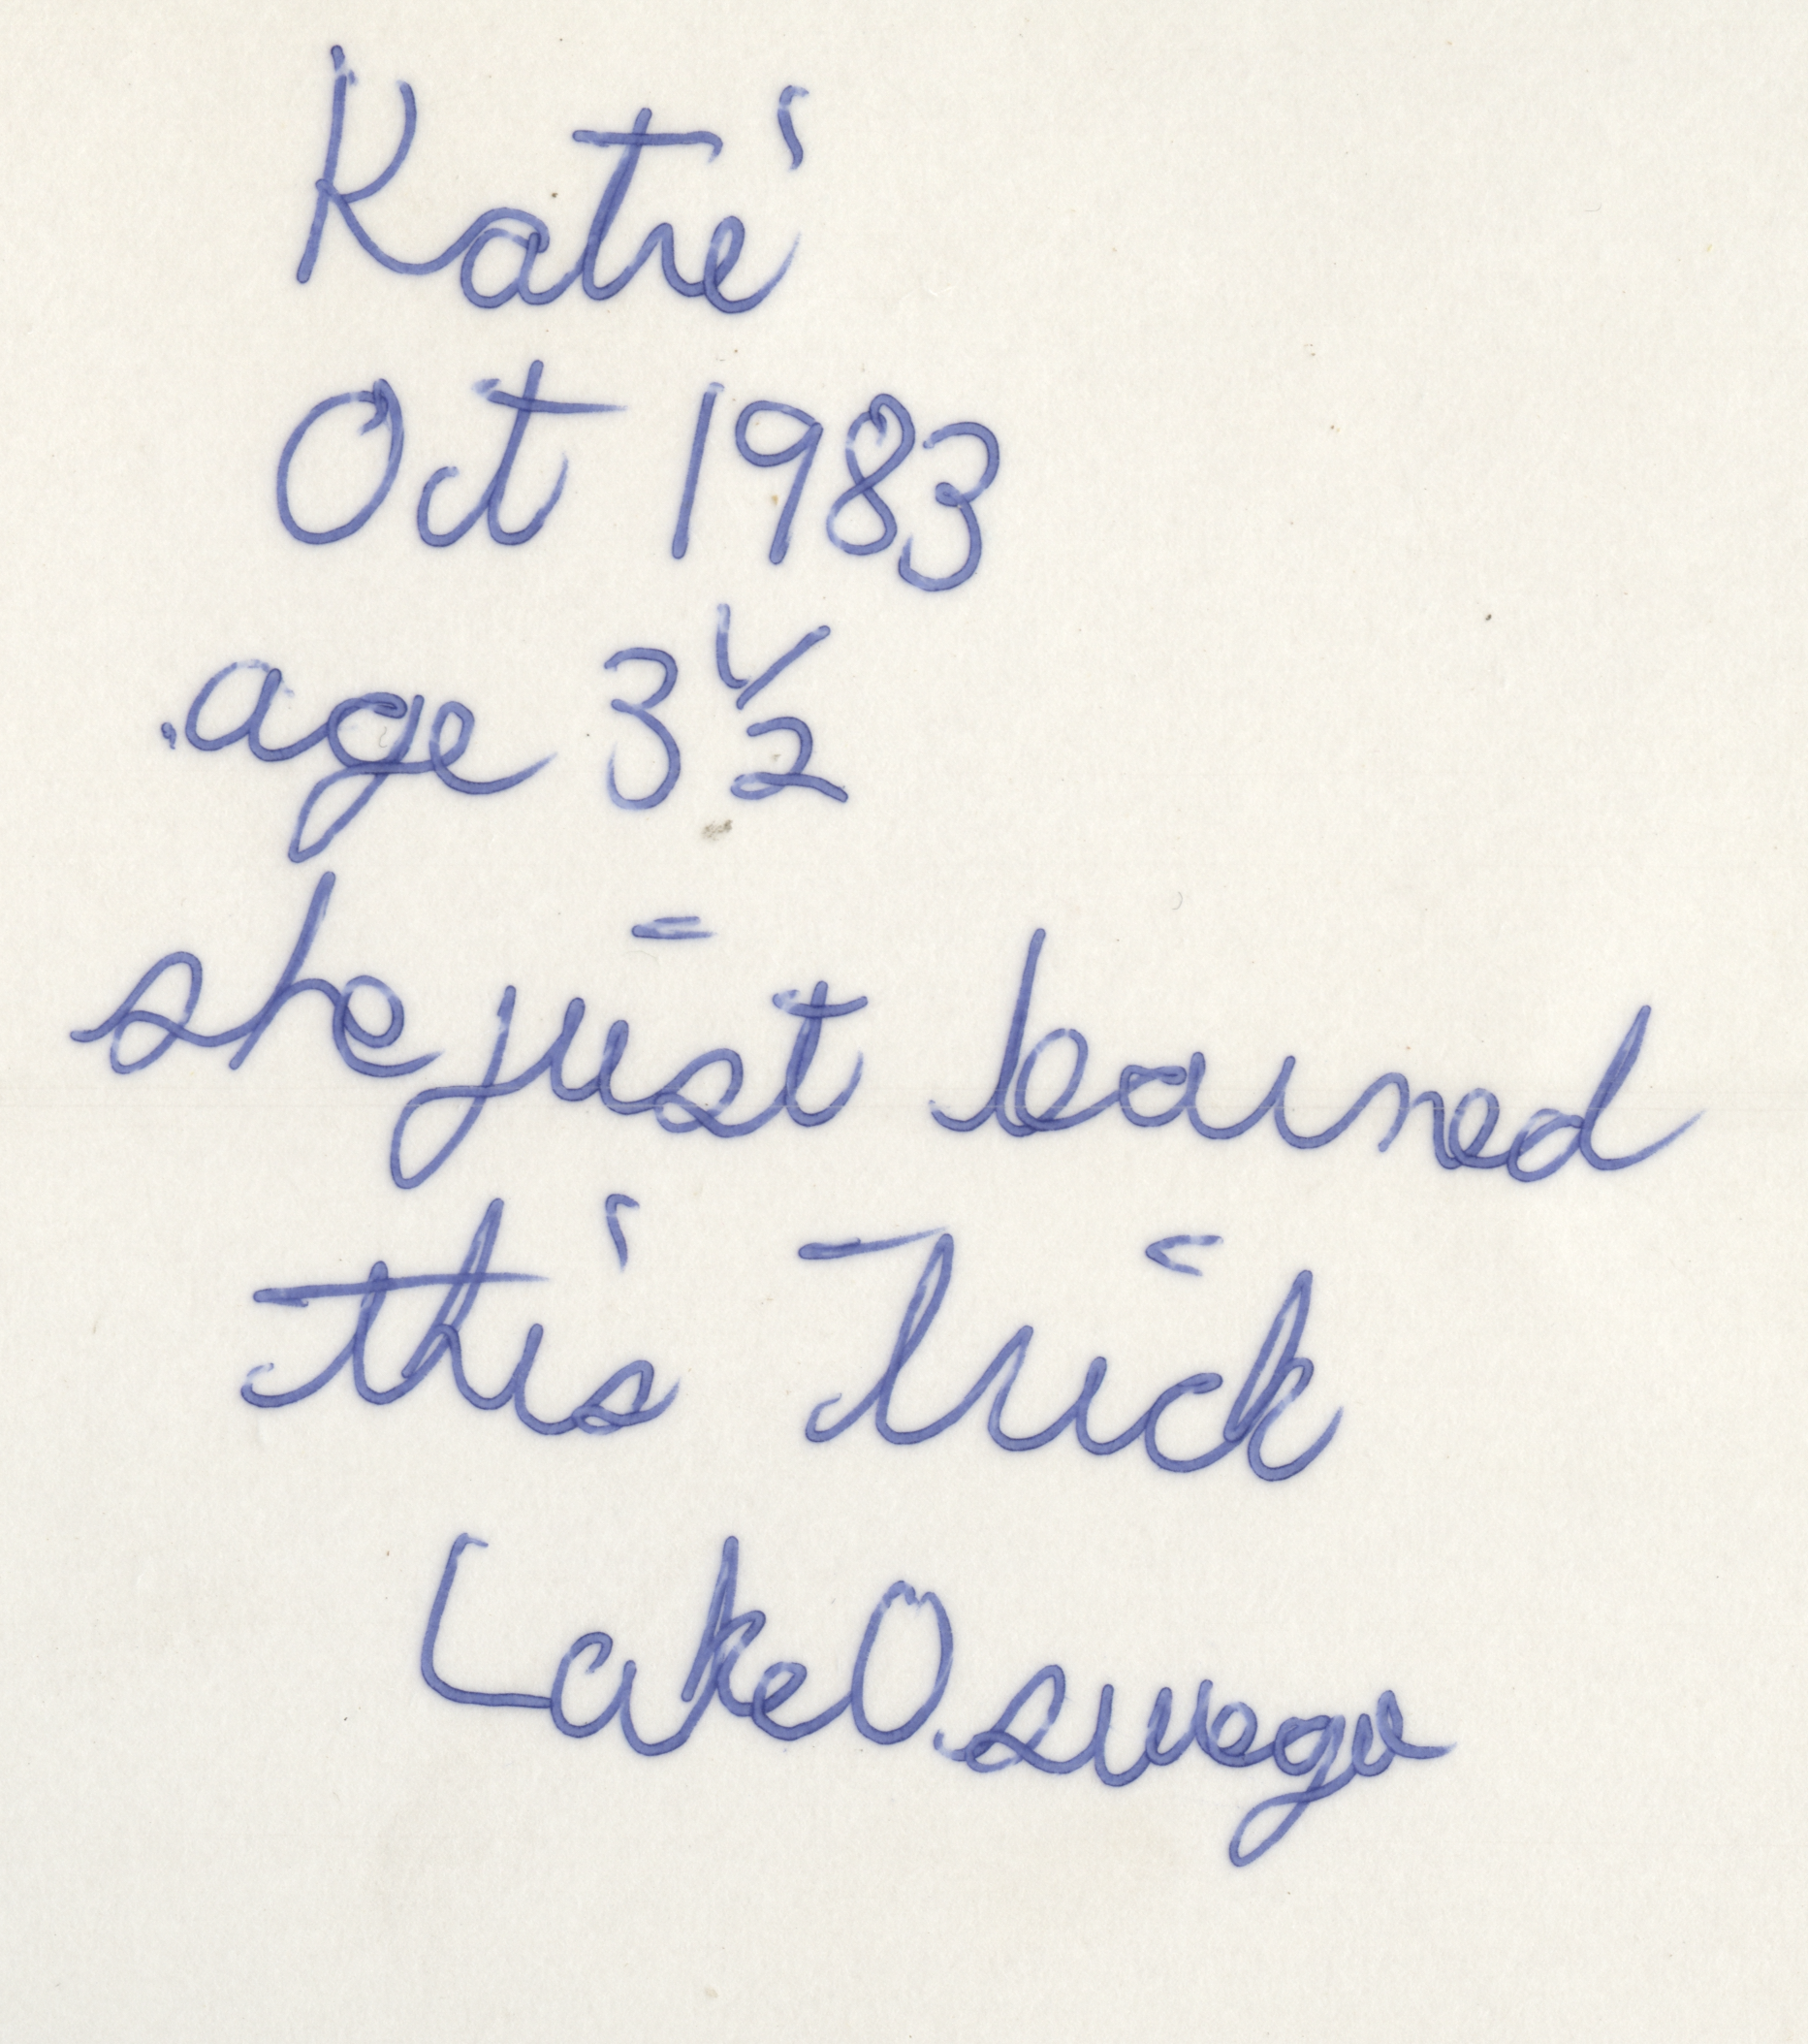 Katie
Oct 1983
age 3 1/2
she just learned
this Trick
Lake Oswego